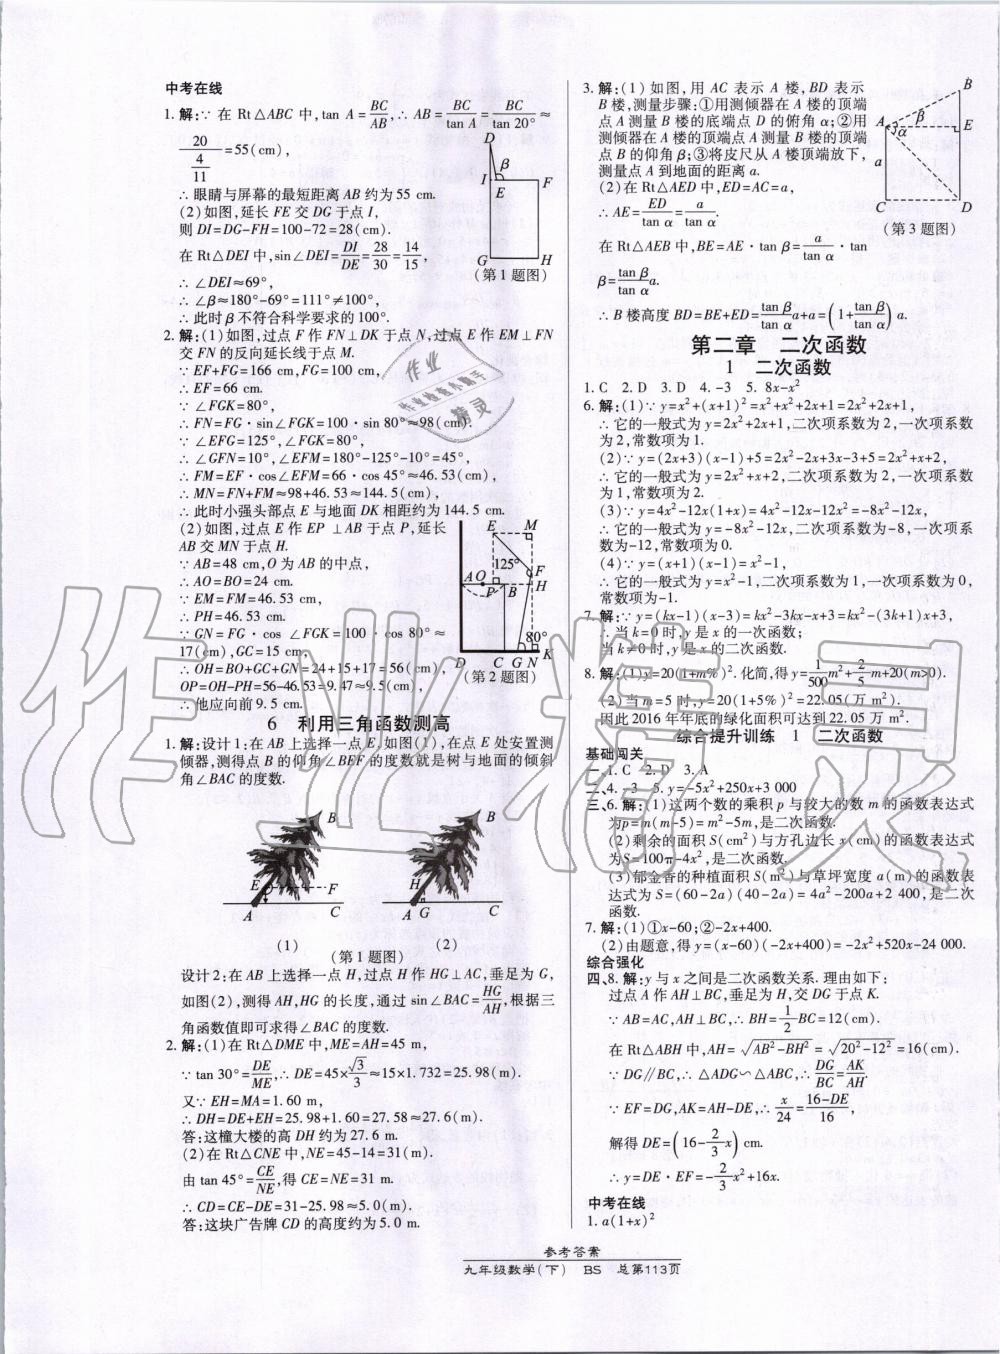 中考在线
1. 解:∵ 在 Rt△ABC 中,tan A=BC/AB,∴ AB=BC/tan A=BC/tan 20°≈
20/(4/11)=55(cm),
∴ 眼睛与屏幕的最短距离 AB 约为 55 cm.
(2)如图,延长 FE 交 DG 于点 I,
则 DI=DG-FH=100-72=28(cm).
在 Rt△DEI 中,sin∠DEI=DI/DE=28/30=14/15,
∴ ∠DEI≈69°,
∴ ∠β≈180°-69°=111°≠100°,
∴ 此时 β 不符合科学要求的 100°.
D
β
I
E
F
G
H
(第 1 题图)
2. 解:(1)如图,过点 F 作 FN⊥DK 于点 N,过点 E 作 EM⊥FN
交 FN 的反向延长线于点 M.
∵ EF+FG=166 cm,FG=100 cm,
∴ EF=66 cm.
∵ ∠FGK=80°,
∴ FN=FG·sin∠FGK=100·sin 80°≈98(cm).
∵ ∠EFG=125°,∠FGK=80°,
∴ ∠GFN=10°,∠EFM=180°-125°-10°=45°,
∴ FM=EF·cos∠EFM=66·cos 45°≈46.53(cm),
∴ MN=FN+FM≈98+46.53≈144.5(cm),
∴ 此时小强头部点 E 与地面 DK 相距约为 144.5 cm.
(2)如图,过点 E 作 EP⊥AB 于点 P,延长
AB 交 MN 于点 H.
∵ AB=48 cm,O 为 AB 的中点,
∴ AO=BO=24 cm.
∵ EM=FM=46.53 cm,
∴ PH=46.53 cm.
∵ GN=FG·cos∠FGK=100·cos 80°≈
17(cm),GC=15 cm,
∴ OH=BO+GC+GN=24+15+17=56(cm),
OP=OH-PH=56-46.53=9.47≈9.5(cm),
∴ 他应向前 9.5 cm.
E
M
125°
F
A
O
P
B
H
80°
D
C
G
N
K
(第 2 题图)
6 利用三角函数测高
1. 解:设计 1:在 AB 上选择一点 E,如图(1),在点 E 处安置测
倾器,测得点 B 的仰角∠BEF 的度数就是树与地面的倾斜
角∠BAC 的度数.
B
E
F
A
C
B
H
A
G
C
(1)
(2)
(第 1 题图)
设计 2:在 AB 上选择一点 H,过点 H 作 HG⊥AC,垂足为 G,
如图(2),测得 AH,HG 的长度,通过 sin∠BAC=HG/AH,根据三
角函数值即可求得∠BAC 的度数.
2. 解:(1)在 Rt△DME 中,ME=AH=45 m,
∵ tan 30°=DE/ME,∴ DE=45×√3/3≈15×1.732=25.98(m).
又∵ EH=MA=1.60 m,
∴ DH=DE+EH=25.98+1.60=27.58≈27.6(m).
答:这幢大楼的高 DH 约为 27.6 m.
(2)在 Rt△CNE 中,NE=45-14=31(m).
由 tan 45°=CE/NE,得 CE=NE=31 m.
∴ CD=CE-DE=31-25.98≈5.0(m).
答:这块广告牌 CD 的高度约为 5.0 m.
3. 解:(1)如图,用 AC 表示 A 楼,BD 表示
B 楼,测量步骤:①用测倾器在 A 楼的顶端
点 A 测量 B 楼的底端点 D 的俯角 α;②用
测倾器在 A 楼的顶端点 A 测量 B 楼的顶端
点 B 的仰角 β;③将皮尺从 A 楼顶端放下,
测量点 A 到地面的距离 a.
(2)在 Rt△AED 中,ED=AC=a,
∴ AE=ED/tan α=a/tan α.
在 Rt△AEB 中,BE=AE·tan β=a/tan α·tan
β=tan β/tan α a.
∴ B 楼高度 BD=BE+ED=tan β/tan α a+a=(1+tan β/tan α)a.
B
A
β
α
E
a
C
D
(第 3 题图)
第二章 二次函数
1 二次函数
1. C 2. D 3. D 4. -3 5. 8x-x²
6. 解:(1)∵ y=x²+(x+1)²=x²+x²+2x+1=2x²+2x+1,
∴ 它的一般式为 y=2x²+2x+1,二次项系数为 2,一次项系数
为 2,常数项为 1.
(2)∵ y=(2x+3)(x-1)+5=2x²-2x+3x-3+5=2x²+x+2,
∴ 它的一般式为 y=2x²+x+2,二次项系数为 2,一次项系数
为 1,常数项为 2.
(3)∵ y=4x²-12x(1+x)=4x²-12x-12x²=-8x²-12x,
∴ 它的一般式为 y=-8x²-12x,二次项系数为-8,一次项系
数为-12,常数项为 0.
(4)∵ y=(x+1)(x-1)=x²-1,
∴ 它的一般式为 y=x²-1,二次项系数为 1,一次项系数为 0,
常数项为-1.
7. 解:∵ y=(kx-1)(x-3)=kx²-3kx-x+3=kx²-(3k+1)x+3,
∴ 当 k=0 时,y 是 x 的一次函数;
当 k≠0 时,y 是 x 的二次函数.
8. 解:(1)y=20(1+m%)².化简,得 y=1/500 m²+2/5 m+20(m>0).
(2)当 m=5 时,y=20(1+5%)²=22.05(万 m²).
因此 2016 年年底的绿化面积可达到 22.05 万 m².
综合提升训练 1 二次函数
基础闯关
一、1. C 2. D 3. A
二、4. -3 5. y=-5x²+250x+3 000
三、6. 解:(1)这两个数的乘积 p 与较大的数 m 的函数表达式
为 p=m(m-5)=m²-5m,是二次函数.
(2)剩余的面积 S(cm²)与方孔边长 x(cm)的函数表达式
为 S=100π-4x²,是二次函数.
(3)郁金香的种植面积 S(m²)与草坪宽度 a(m)的函数表
达式为 S=(60-2a)(40-2a)=4a²-200a+2 400,是二次
函数.
7. 解:(1)①x-60;②-2x+400.
(2)由题意,得 y=(x-60)(-2x+400)=-2x²+520x-24 000.
综合强化
四、8. 解:y 与 x 之间是二次函数关系.理由如下:
过点 A 作 AH⊥BC,垂足为 H,交 DG 于点 K.
∵ AB=AC,AH⊥BC,∴ BH=1/2 BC=12(cm).
在 Rt△ABH 中,AH=√(AB²-BH²)=√(20²-12²)=16(cm).
∵ DG∥BC,∴ △ADG∽△ABC,∴ DG/BC=AK/AH.
∵ EF=DG,AK=AH-DE,∴ x/24=(16-DE)/16,
解得 DE=(16-2/3 x) cm.
∴ y=DE·EF=-2/3 x²+16x.
中考在线
1. a(1+x)²
参考答案
九年级数学(下) BS 总第113页
作业精灵
作业
作业检查小助手
精灵